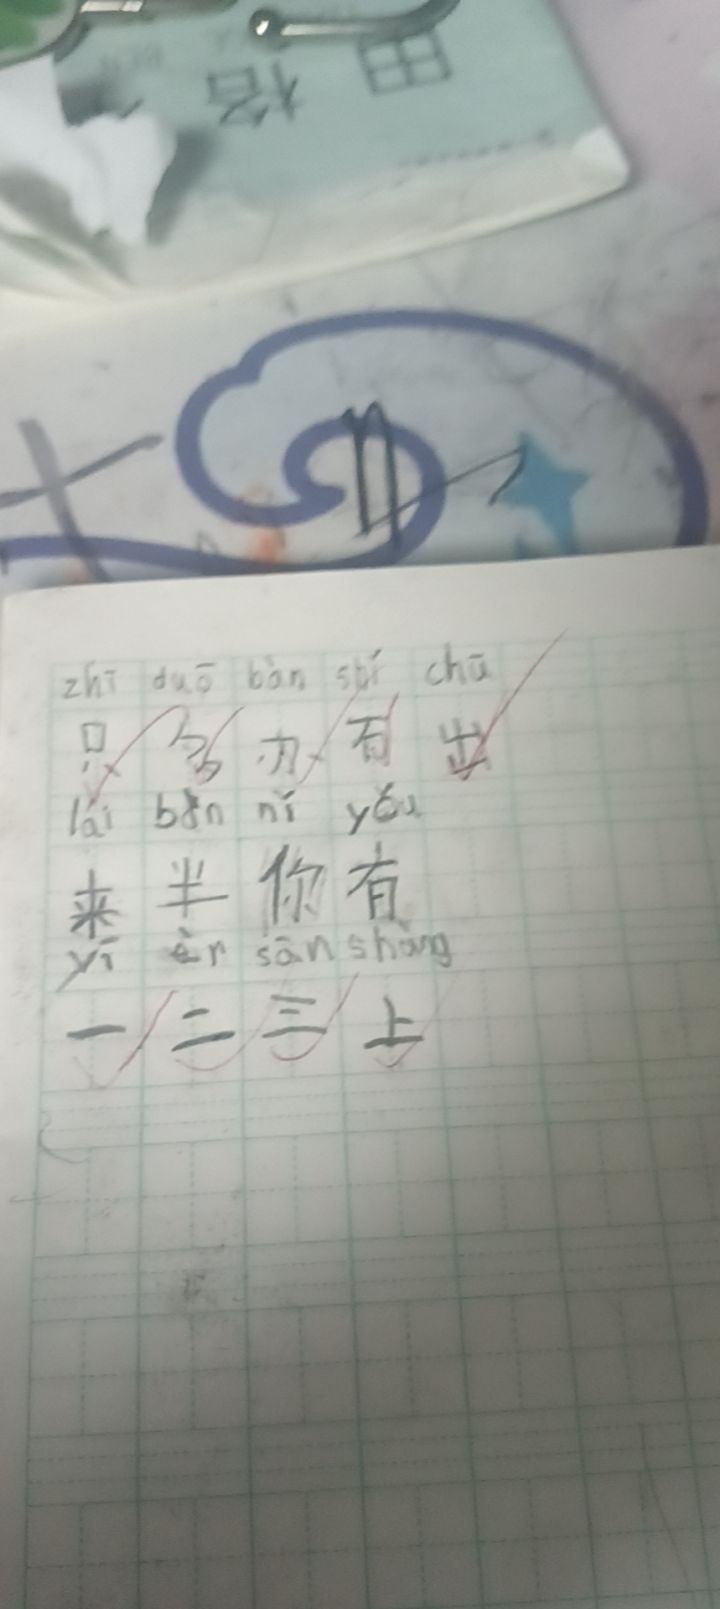 田格
zhī duō bàn shí chū
只多办石出
lái bàn nǐ yǒu
来半你有
yī èr sān shàng
一二三上